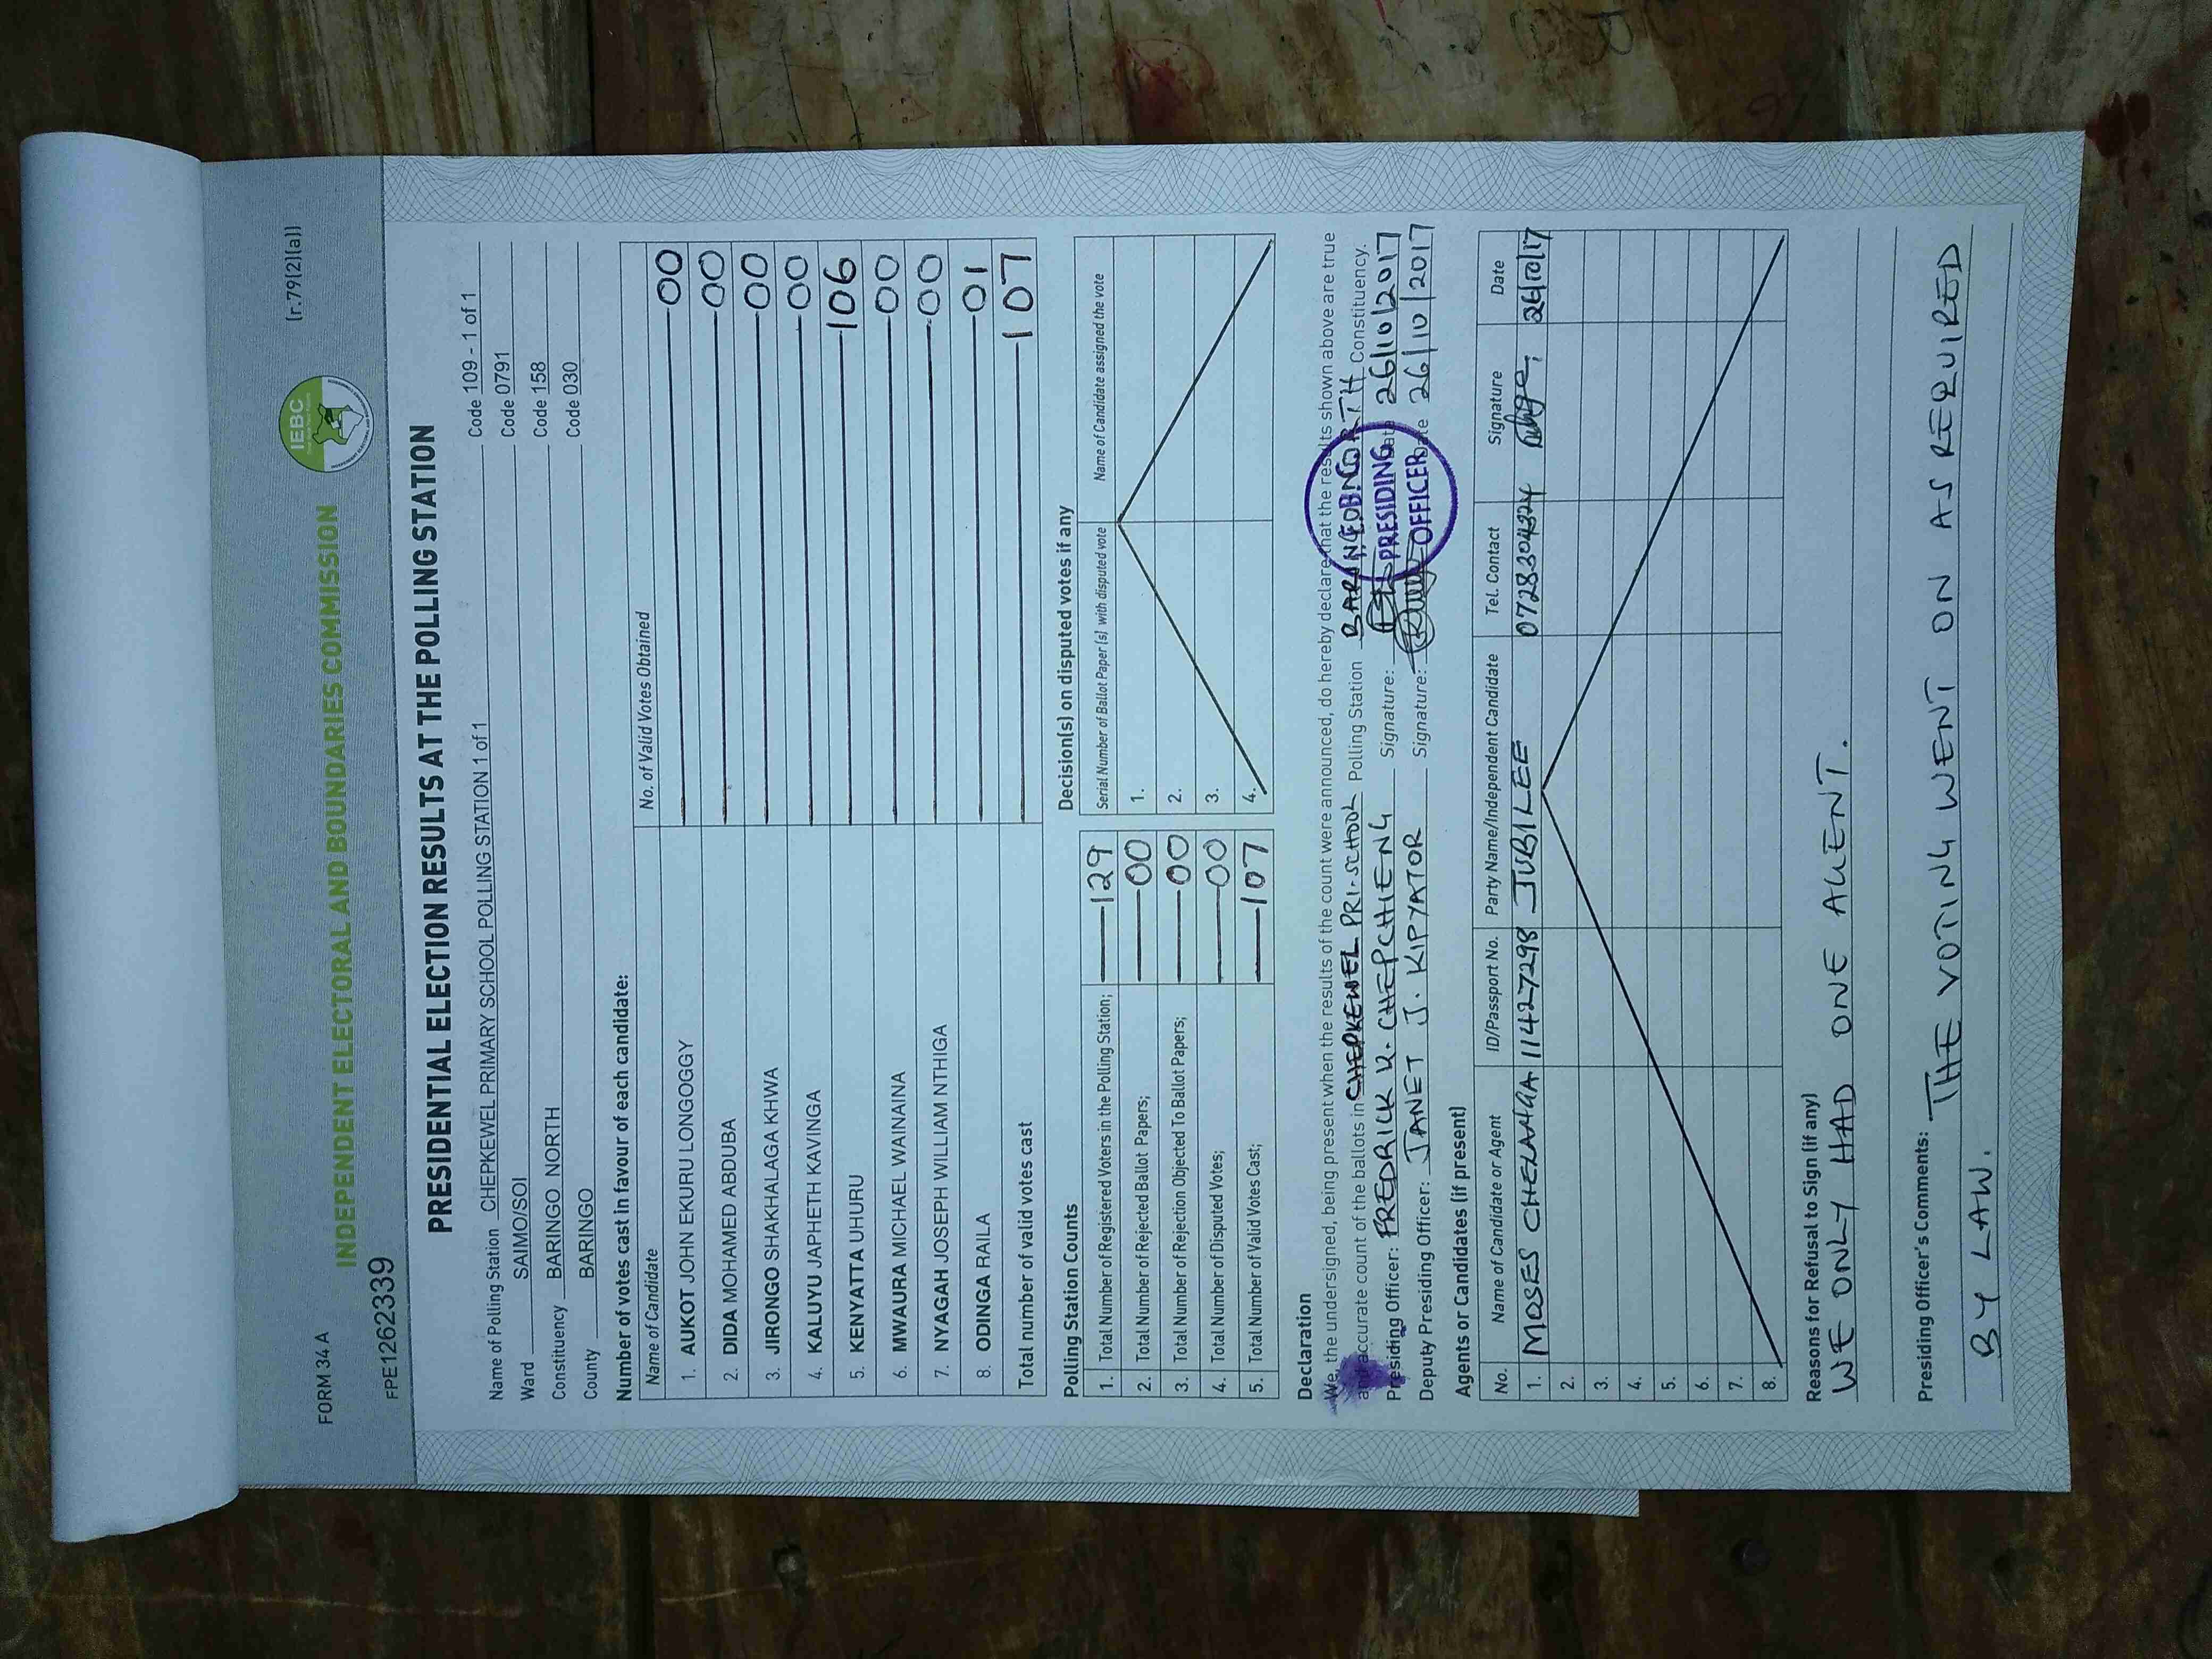 FORM 34 A
(r.79(2)(a))
INDEPENDENT ELECTORAL AND BOUNDARIES COMMISSION
IEBC
FPE1262339
PRESIDENTIAL ELECTION RESULTS AT THE POLLING STATION
Name of Polling Station CHEPKEWEL PRIMARY SCHOOL POLLING STATION 1 of 1 Code 109 - 1 of 1
Ward SAIMO/SOI Code 0791
Constituency BARINGO NORTH Code 158
County BARINGO Code 030
Number of votes cast in favour of each candidate:
Name of Candidate No. of Valid Votes Obtained
1. AUKOT JOHN EKURU LONGOGGY 00
2. DIDA MOHAMED ABDUBA 00
3. JIRONGO SHAKHALAGA KHWA 00
4. KALUYU JAPHETH KAVINGA 00
5. KENYATTA UHURU 106
6. MWAURA MICHAEL WAINAINA 00
7. NYAGAH JOSEPH WILLIAM NTHIGA 00
8. ODINGA RAILA 01
Total number of valid votes cast 107
Polling Station Counts
1. Total Number of Registered Voters in the Polling Station; 129
2. Total Number of Rejected Ballot Papers; 00
3. Total Number of Rejection Objected To Ballot Papers; 00
4. Total Number of Disputed Votes; 00
5. Total Number of Valid Votes Cast; 107
Decision(s) on disputed votes if any
Serial Number of Ballot Paper (s) with disputed vote Name of Candidate assigned the vote
1.
2.
3.
4.
Declaration
We, the undersigned, being present when the results of the count were announced, do hereby declare that the results shown above are true
and accurate count of the ballots in CHEPKEWEL PRI-SCHOOL Polling Station BARINGO NORTH Constituency.
Presiding Officer: FREDRICK K. CHEPCHIENG Signature: Date 26/10/2017
Deputy Presiding Officer: JANET J. KIPYATOR Signature: Date 26/10/2017
PRESIDING
OFFICER
Agents or Candidates (if present)
No. Name of Candidate or Agent ID/Passport No. Party Name/Independent Candidate Tel. Contact Signature Date
1. MOSES CHELANGA 11427298 JUBILEE 0728304824 26/10/17
2.
3.
4.
5.
6.
7.
8.
Reasons for Refusal to Sign (if any)
WE ONLY HAD ONE AGENT.
Presiding Officer's Comments: THE VOTING WENT ON AS REQUIRED
BY LAW.